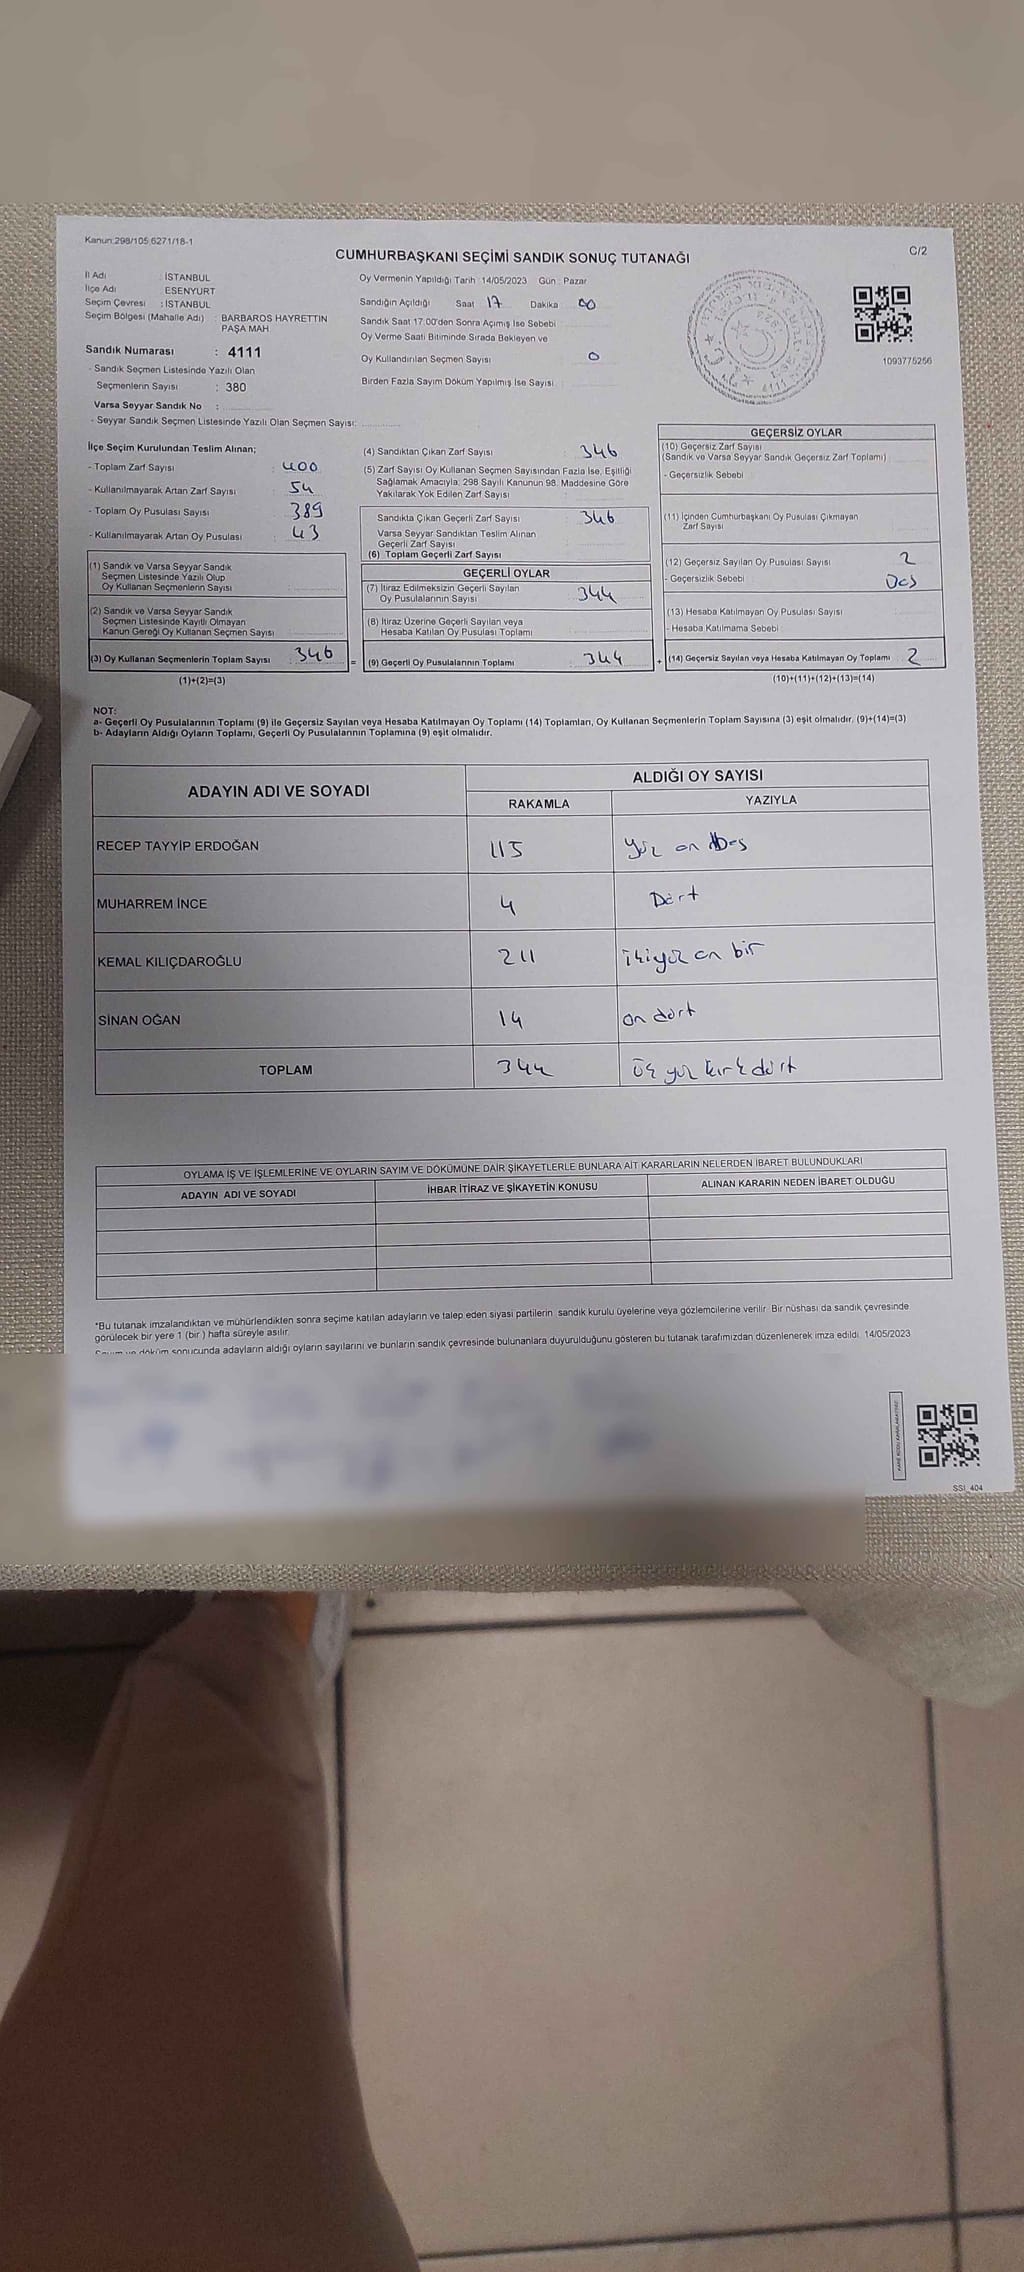 Kanun:298/105;6271/18-1
C/2
CUMHURBAŞKANI SEÇİMİ SANDIK SONUÇ TUTANAĞI
İl Adı : İSTANBUL
İlçe Adı : ESENYURT
Seçim Çevresi : İSTANBUL
Seçim Bölgesi (Mahalle Adı) : BARBAROS HAYRETTIN
PAŞA MAH
Sandık Numarası : 4111
- Sandık Seçmen Listesinde Yazılı Olan
Seçmenlerin Sayısı : 380
Varsa Seyyar Sandık No :
- Seyyar Sandık Seçmen Listesinde Yazılı Olan Seçmen Sayısı:
Oy Vermenin Yapıldığı Tarih : 14/05/2023 Gün : Pazar
Sandığın Açıldığı Saat 17 Dakika 00
Sandık Saat 17:00'den Sonra Açılmış İse Sebebi
Oy Verme Saati Bitiminde Sırada Bekleyen ve
Oy Kullandırılan Seçmen Sayısı 0
Birden Fazla Sayım Döküm Yapılmış İse Sayısı
1093775256
İlçe Seçim Kurulundan Teslim Alınan;
- Toplam Zarf Sayısı : 400
- Kullanılmayarak Artan Zarf Sayısı : 54
- Toplam Oy Pusulası Sayısı : 389
- Kullanılmayarak Artan Oy Pusulası : 43
(1) Sandık ve Varsa Seyyar Sandık
Seçmen Listesinde Yazılı Olup
Oy Kullanan Seçmenlerin Sayısı
(2) Sandık ve Varsa Seyyar Sandık
Seçmen Listesinde Kayıtlı Olmayan
Kanun Gereği Oy Kullanan Seçmen Sayısı
(3) Oy Kullanan Seçmenlerin Toplam Sayısı : 346
(1)+(2)=(3)
(4) Sandıktan Çıkan Zarf Sayısı : 346
(5) Zarf Sayısı Oy Kullanan Seçmen Sayısından Fazla İse, Eşitliği
Sağlamak Amacıyla, 298 Sayılı Kanunun 98. Maddesine Göre
Yakılarak Yok Edilen Zarf Sayısı
Sandıkta Çıkan Geçerli Zarf Sayısı : 346
Varsa Seyyar Sandıktan Teslim Alınan
Geçerli Zarf Sayısı
(6) Toplam Geçerli Zarf Sayısı
GEÇERLİ OYLAR
(7) İtiraz Edilmeksizin Geçerli Sayılan
Oy Pusulalarının Sayısı : 344
(8) İtiraz Üzerine Geçerli Sayılan veya
Hesaba Katılan Oy Pusulası Toplamı
= (9) Geçerli Oy Pusulalarının Toplamı : 344 +
GEÇERSİZ OYLAR
(10) Geçersiz Zarf Sayısı
(Sandık ve Varsa Seyyar Sandık Geçersiz Zarf Toplamı)
- Geçersizlik Sebebi
(11) İçinden Cumhurbaşkanı Oy Pusulası Çıkmayan
Zarf Sayısı
(12) Geçersiz Sayılan Oy Pusulası Sayısı 2
- Geçersizlik Sebebi
(13) Hesaba Katılmayan Oy Pusulası Sayısı
- Hesaba Katılmama Sebebi
(14) Geçersiz Sayılan veya Hesaba Katılmayan Oy Toplamı : 2
(10)+(11)+(12)+(13)=(14)
NOT:
a- Geçerli Oy Pusulalarının Toplamı (9) ile Geçersiz Sayılan veya Hesaba Katılmayan Oy Toplamı (14) Toplamları, Oy Kullanan Seçmenlerin Toplam Sayısına (3) eşit olmalıdır. (9)+(14)=(3)
b- Adayların Aldığı Oyların Toplamı, Geçerli Oy Pusulalarının Toplamına (9) eşit olmalıdır.
ADAYIN ADI VE SOYADI ALDIĞI OY SAYISI
RAKAMLA YAZIYLA
RECEP TAYYİP ERDOĞAN 115 yüz on beş
MUHARREM İNCE 4 Dört
KEMAL KILIÇDAROĞLU 211 ikiyüz on bir
SİNAN OĞAN 14 on dört
TOPLAM 344 üç yüz kırk dört
OYLAMA İŞ VE İŞLEMLERİNE VE OYLARIN SAYIM VE DÖKÜMÜNE DAİR ŞİKAYETLERLE BUNLARA AİT KARARLARIN NELERDEN İBARET BULUNDUKLARI
ADAYIN ADI VE SOYADI İHBAR İTİRAZ VE ŞİKAYETİN KONUSU ALINAN KARARIN NEDEN İBARET OLDUĞU
*Bu tutanak imzalandıktan ve mühürlendikten sonra seçime katılan adayların ve talep eden siyasi partilerin sandık kurulu üyelerine veya gözlemcilerine verilir. Bir nüshası da sandık çevresinde
görülecek bir yere 1 (bir ) hafta süreyle asılır.
Sayım ve döküm sonucunda adayların aldığı oyların sayılarını ve bunların sandık çevresinde bulunanlara duyurulduğunu gösteren bu tutanak tarafımızdan düzenlenerek imza edildi. 14/05/2023
SSİ_404